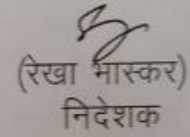 (रेखा भास्कर)
निदेशक